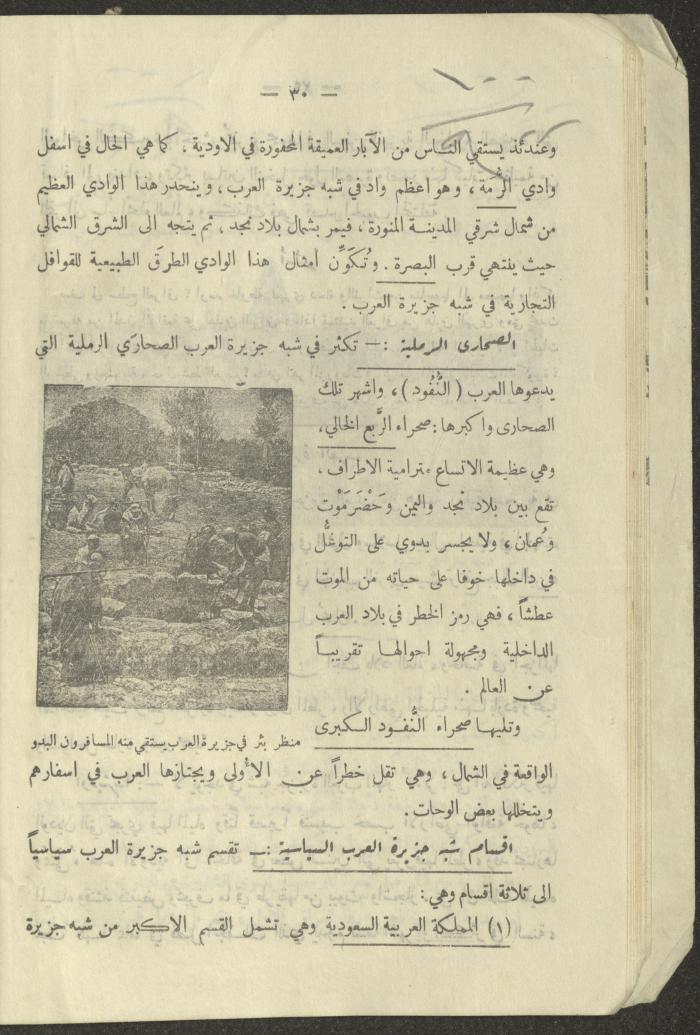 — ٣٠ —
وعندئذ يستقي الناس من الآبار العميقة المحفورة في الاودية ، كما هي الحال في اسفل
وادي الرُّمَة ، وهو اعظم واد في شبه جزيرة العرب، وينحدر هذا الوادي العظيم
من شمال شرقي المدينة المنورة ، فيمر بشمال بلاد نجد ، ثم يتجه الى الشرق الشمالي
حيث ينتهي قرب البصرة . وتُكَوِّن امثال هذا الوادي الطرق الطبيعية للقوافل
التجارية في شبه جزيرة العرب .
الصحارى الرملية : — تكثر في شبه جزيرة العرب الصحارَي الرملية التي
يدعوها العرب ( النُّفُود ) ، واشهر تلك
الصحارى واكبرها : صحراء الرَّبع الخالي،
وهي عظيمة الاتساع مترامية الاطراف ،
تقع بين بلاد نجد واليمن وَحَضْرَمَوْت
وعُمان ، ولا يجسر بدوي على التوغُّل
في داخلها خوفا على حياته من الموت
عطشاً ، فهي رمز الخطر في بلاد العرب
الداخلية ومجهولة احوالها تقريباً
عن العالم .
وتليها صحراء النُّفود الكبرى
منظر بئر في جزيرة العرب يستقي منه المسافرون البدو
الواقعة في الشمال ، وهي تقل خطراً عن الأولى ويجتازها العرب في اسفارهم
ويتخللها بعض الوحات .
اقسام شبه جزيرة العرب السياسية : — تقسم شبه جزيرة العرب سياسياً
الى ثلاثة اقسام وهي :
(١) المملكة العربية السعودية وهي تشمل القسم الاكبر من شبه جزيرة